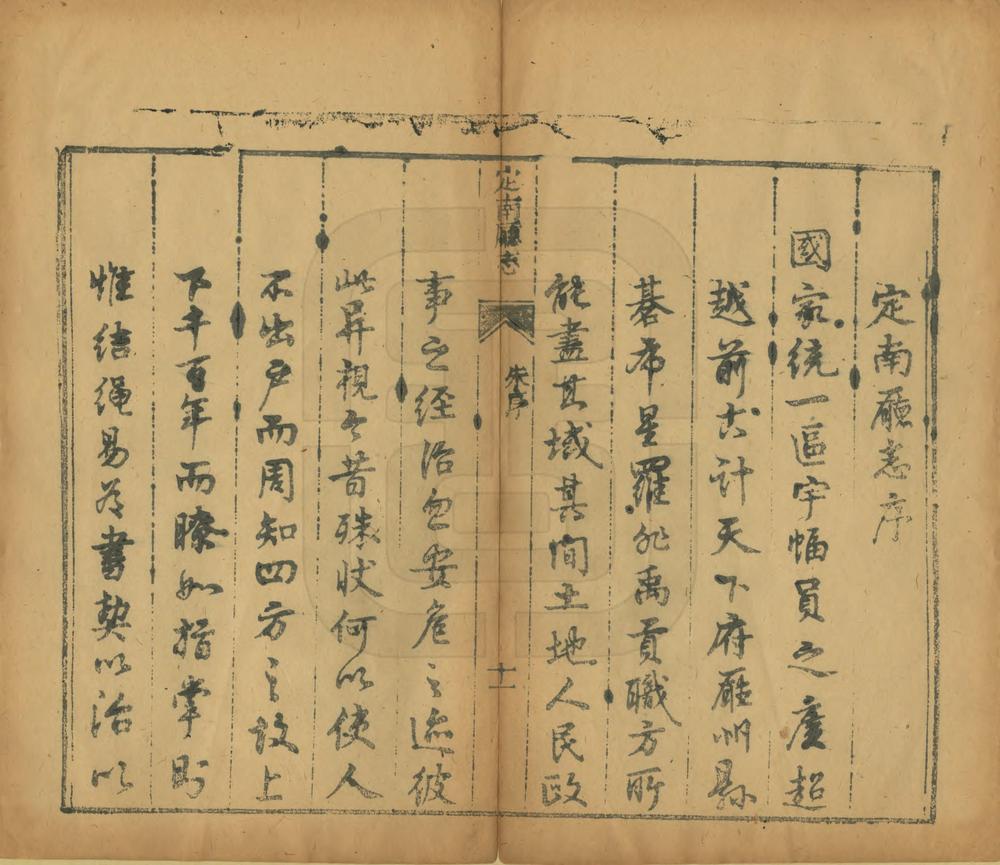 定南廳志序
國家統一區宇幅員之廣超
越前古計天下府廳州縣
碁布星羅非禹貢職方所
能盡其域其間土地人民政
定南廳志
朱序
十一
事之經治忽安危之迹彼
此异視今昔殊狀何以使人
不出戶而周知四方之故上
下千百年而瞭如指掌則
惟結繩易爲書契以治以